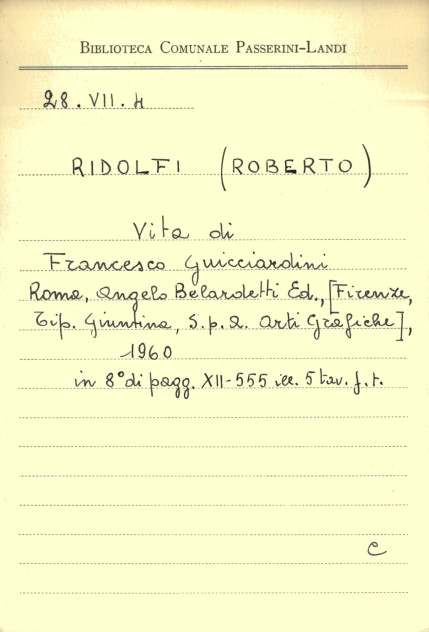 BIBLIOTECA COMUNALE PASSERINI-LANDI
28. VII. 4
RIDOLFI (ROBERTO)
Vita di
Francesco Guicciardini
Roma, Angelo Belardetti Ed., [Firenze,
Tip. Giuntina, S.p.a. Arti Grafiche],
1960
in 8° di pagg. XII-555 ill. 5 tav. f.t.
C